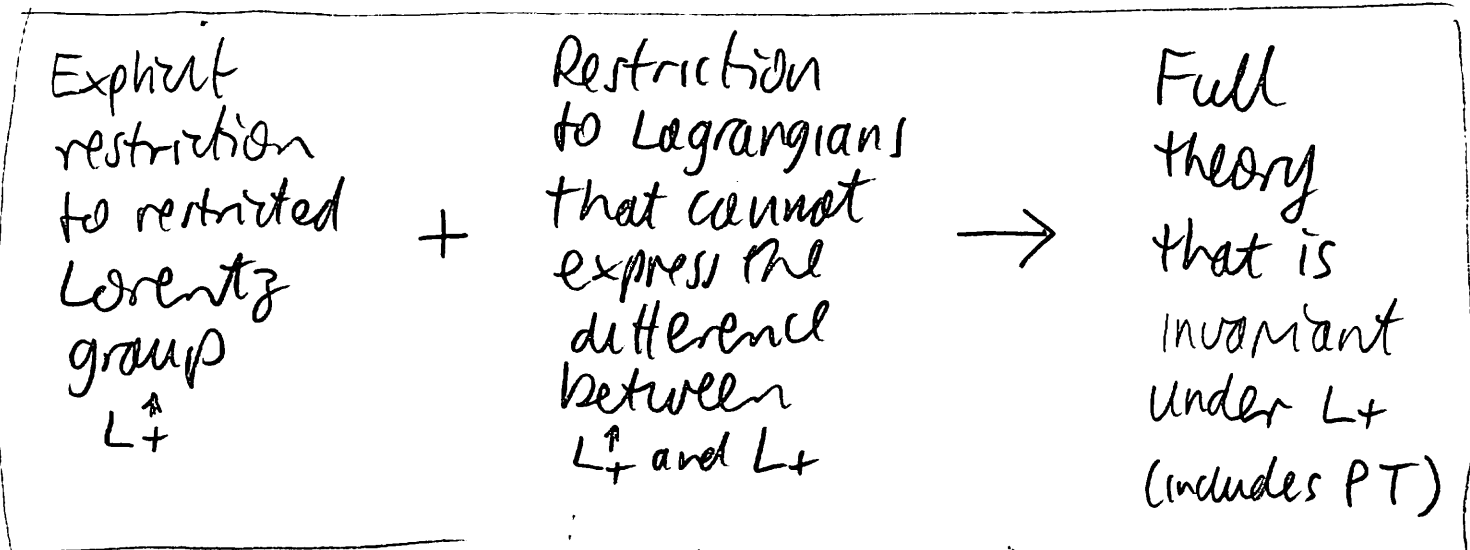 Explicit
restriction
to restricted
Lorentz
group
L↑+
+
Restriction
to Lagrangians
that cannot
express the
difference
between
L↑+ and L+
→
Full
theory
that is
invariant
under L+
(includes PT)